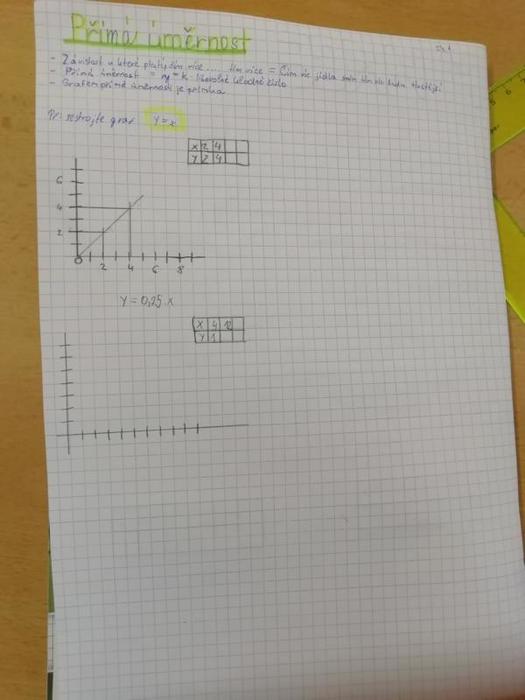 Přímá úměrnost
- Závislost u které platí čím více .... tím více = Čím víc jídla sním tím budu tlustější
- Přímá úměrnost = y = k. libovolné číslo
- Grafem přímé úměrnosti je polopřímka
Př: sestrojte graf y = x
x 2 4
y 2 4
6
4
2
0 2 4 6 8
y = 0,25 . x
x 4 12
y 1